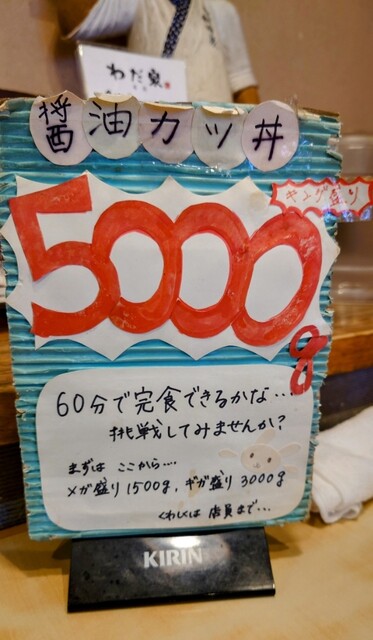 わだ泉
醤油カツ丼
キング盛り
5000g
60分で完食できるかな…
挑戦してみませんか?
まずは ここから…
メガ盛り1500g, ギガ盛り3000g
くわしくは 店員まで…
KIRIN